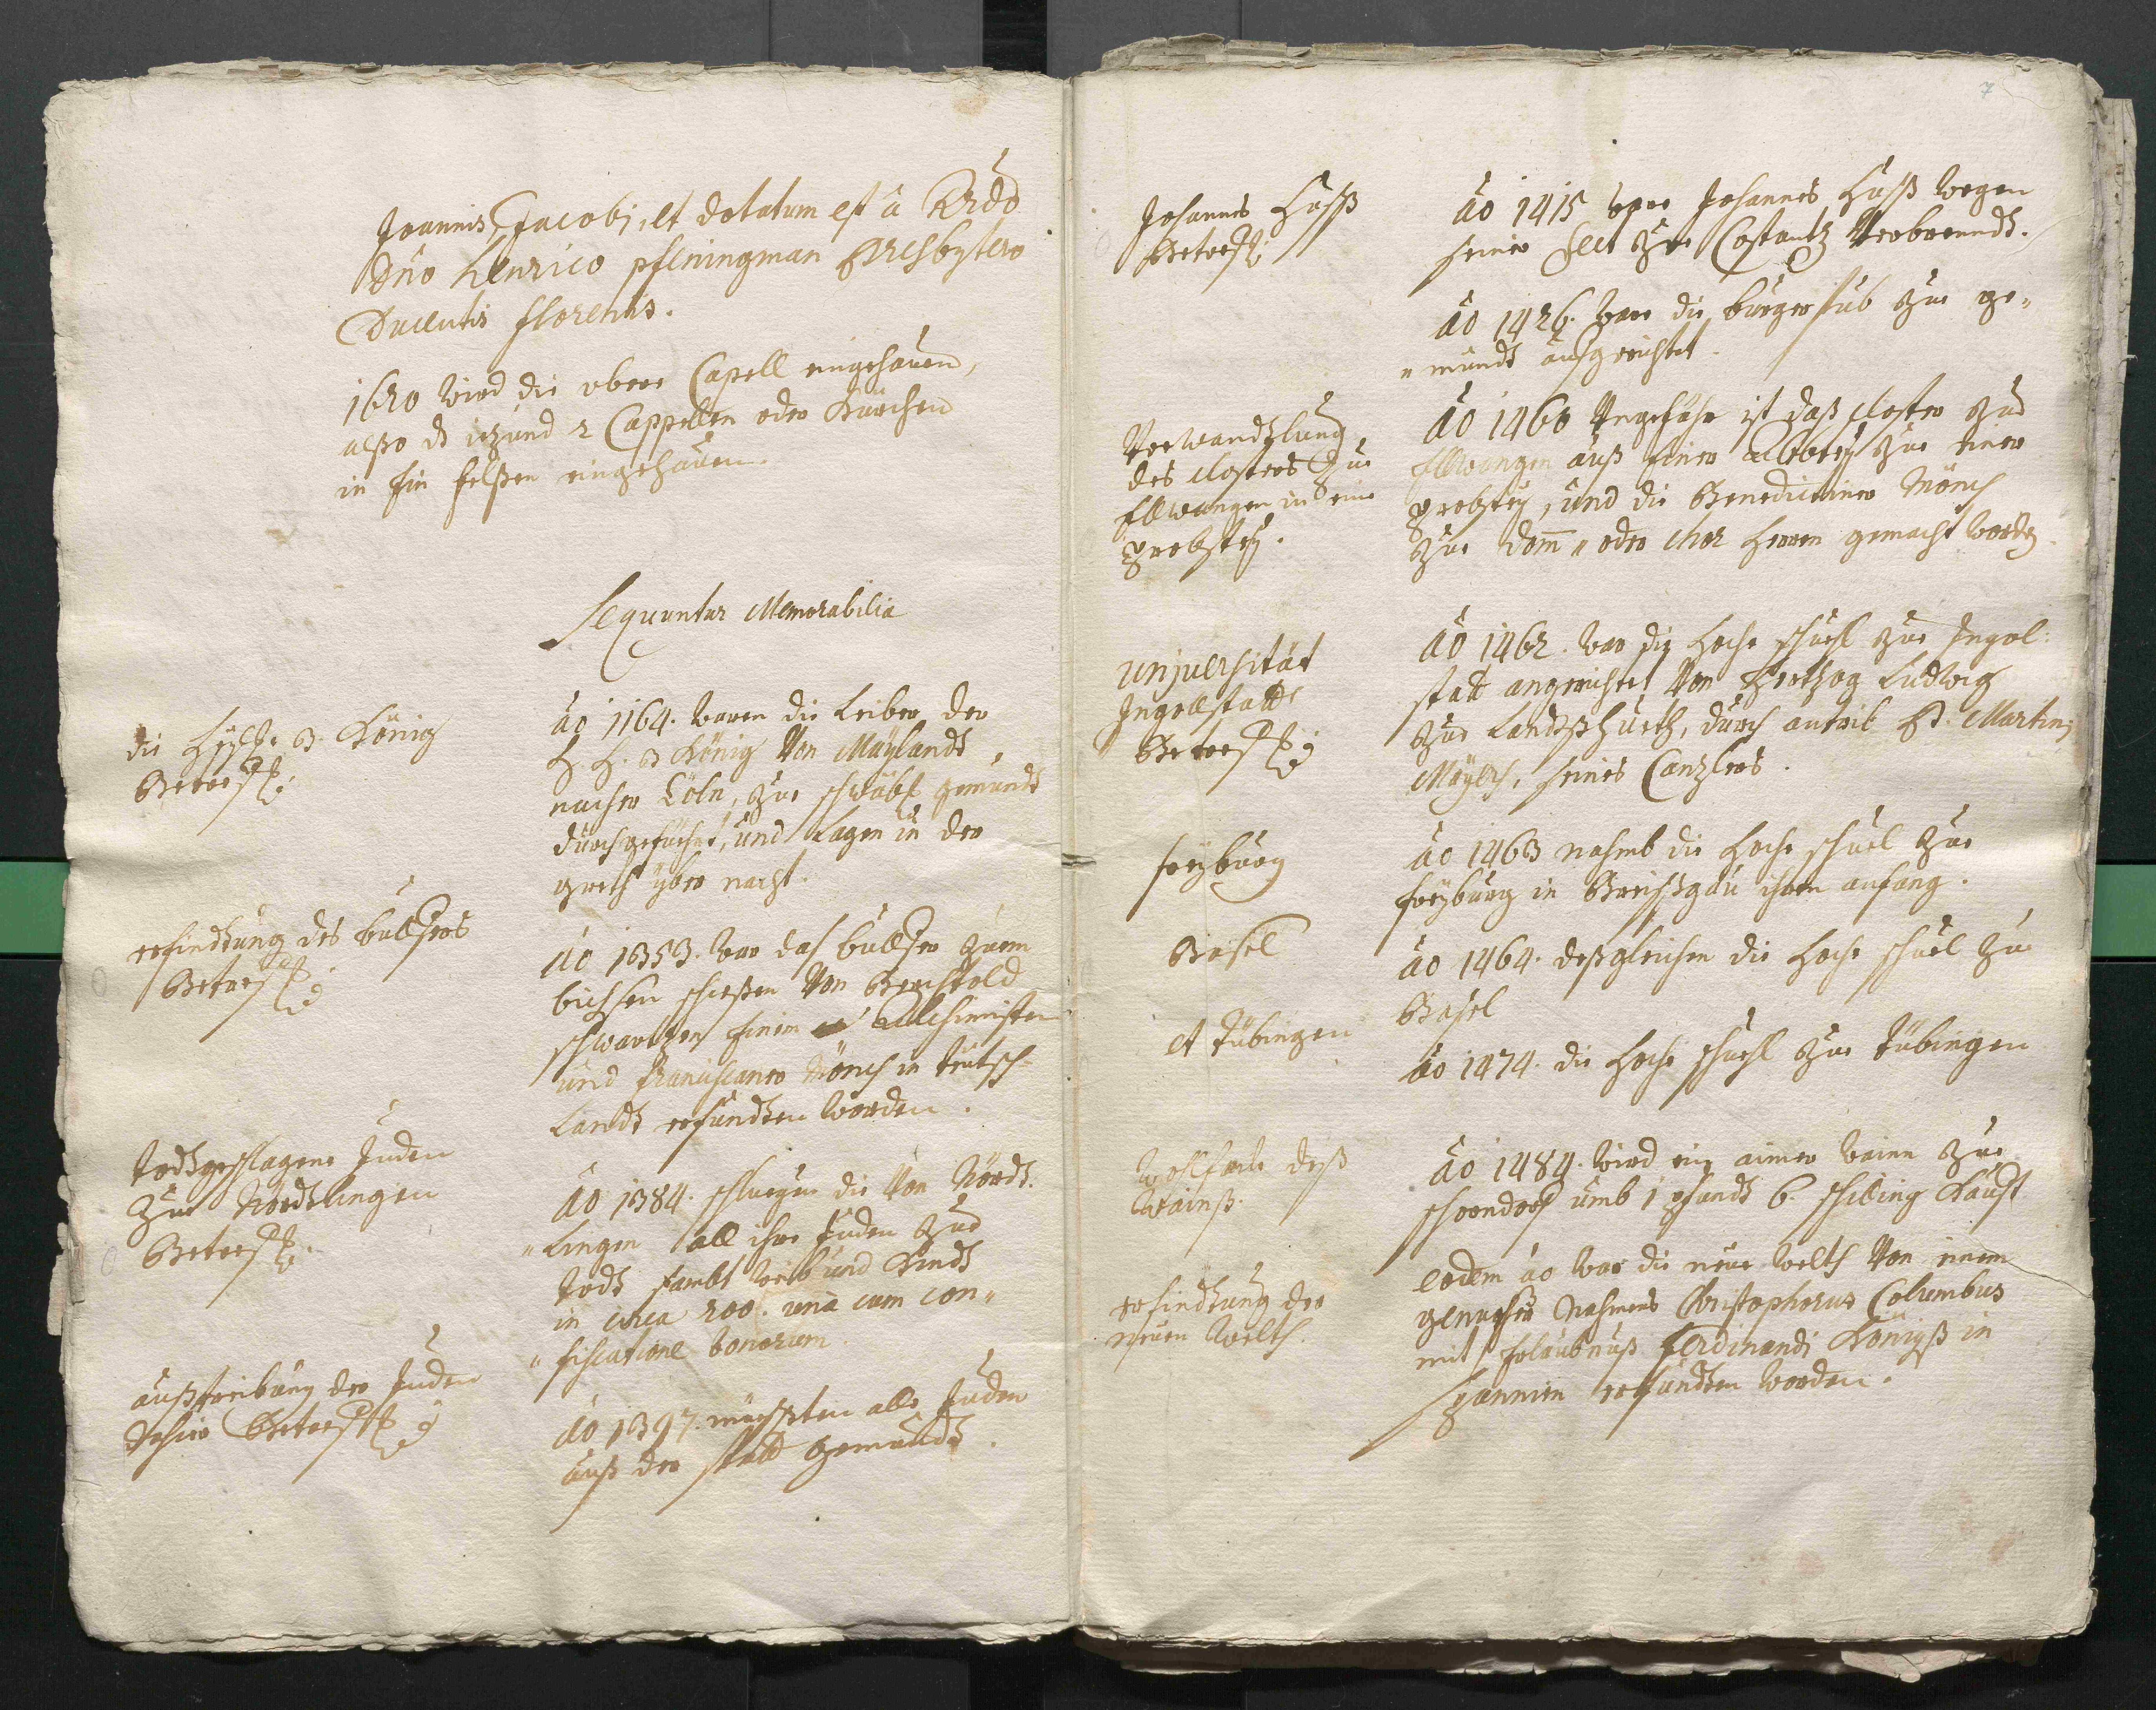 Joannis, Jacobj, et dotatum est a Rndo
Dno Henrico pfeningman Presbytero
Ducentis florenis.
1620 wird die obere Capell eingehauen,
alßo dz iezund 2 Cappellen oder Kürchen
in ein felßen eingehauen.
Sequntur Memorabilia
die Hyll. 3. König
Betreff:
Ao 1164. waren die Leiber der
H. H. 3 König Von Maylandt
nacher Cöln, zue schwäbs gemündt
durchgefüehrt, und Lagen in der
greth yber nacht.
erfindtung des bullfers
Betreff:
Ao 1353. war das bullfer zuem
bichsen schießen Von Berchtold
schwartzen einem Alchimisten
und franciscaner Mönch in teutsch
Landt erfundten worden.
todtgeschlagene Juden
Zue Nördtlingen
Betreff:
Ao 1384. schluegen die Von Nördt
"Lingen all ihre Juden zue
todt sambt weib und Kindt
in circa 200. una cum con"
"fiscatione bonorum
außtreibung der Juden
dahier Betreff:
Ao 1397. müeßten alle Juden
auß der statt gemündt.
7
Johannes Huß
Betreff:
Ao 1415 ware Johannes Huß wegen
seiner sect zue Costantz Verbrenndt.
Ao 1426. ware die burgerstub zue ge"
"mündt aufgerichtet.
Verwandtlung
des closters zue
Ellwangen in eine
probstey.
Ao 1460 Ungefähr ist daß closter zue
Ellwangen auß einer Abbtey zue einer
probstey, und die Benedictiner Mönch
zue dom" oder chor Herren gemacht wordten
unjversität
Ingollstatt
Betreff:
Ao 1462. war die Hoche schuehl zue Ingol:
statt angericht Von Hertzog Ludwig
zue Landtßhueth, durch antrib H. Martin
Mayers, seines Canzlers.
freyburg
Ao 1463 nahmb die Hoche schuel zue
freyburg in Breißgäu ihren anfang.
Basel
Ao 1464. deßgleichen die Hoche schuel zue
Basel
et Tübingen
Ao 1474. die Hoche schuehl zue Tübingen
Wohlfeile deß
Wainß.
Ao 1484. wird ein aimer wein zue
schorndorf umb 1 pfundt 6. schilling Kauft
erfindtung der
neuen Welth.
eodem ao war die neue welth Von einem
genueser Nahmens Christophorus Columbus
mit Erlaubnuß Ferdinandi Königß in
Spannien erfundten worden.